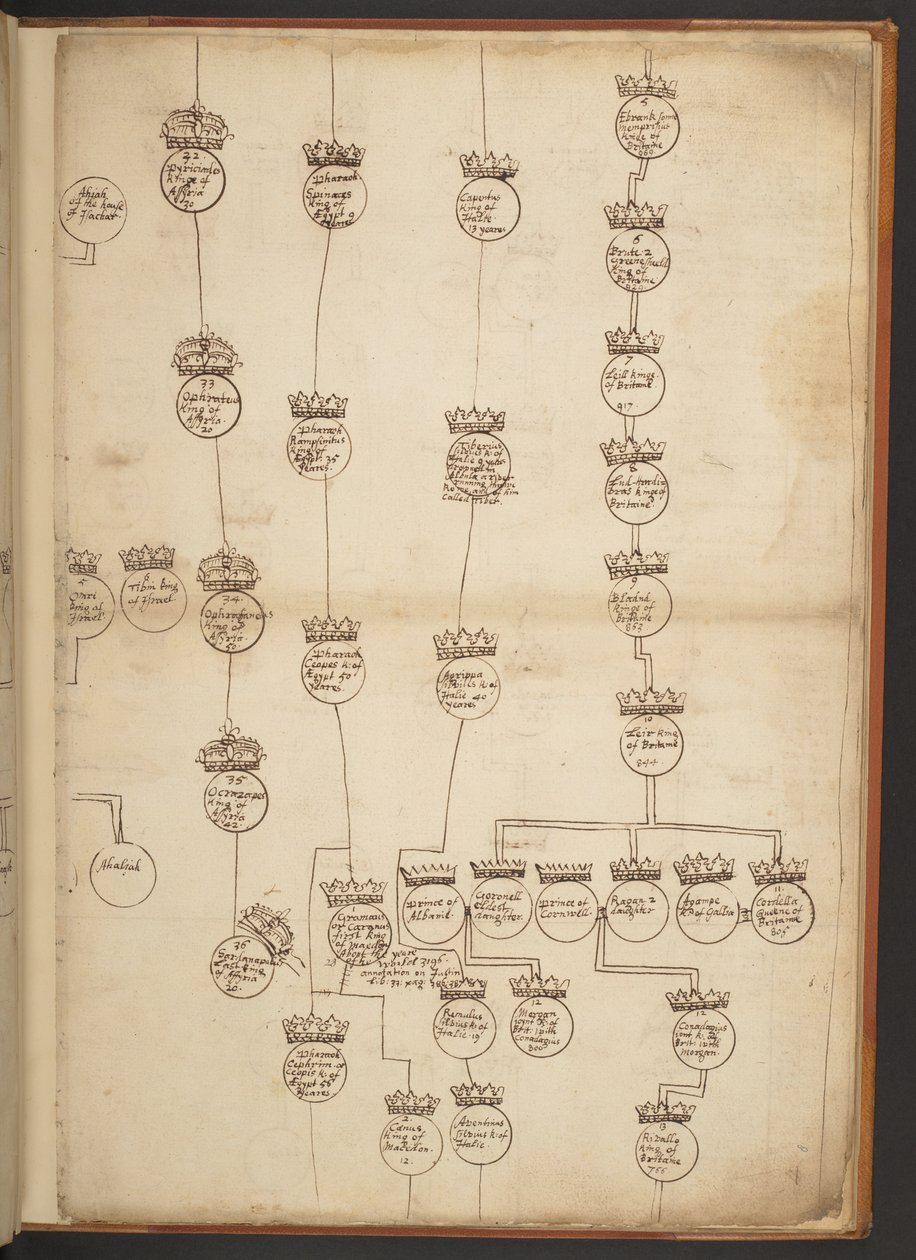 Ahiah
of the house
of Isachar.
32
Pyriciades
Kinge of
Assyria
30
Pharaoh
Spinaces
King of
Ægypt 9
yeares
Capentus
King of
Italie
13 yeares
5
Ebrank sonne
Memprisius
Kinge of
Britaine
6
Brute: 2
Greenesheeld
King of
Britaine
33
Ophrateus
King of
Assyria.
20
Pharaoh
Rampsinitus
King of
Ægypt. 35
yeares.
Tiberius
Silvius k: of
Italie 9
Rome and of him
called Tiber.
7
Leill Kinge
of Britane
917
8
Lud-Hurdi-
bras Kinge of
Britaine
5
Omri
King of
Israel.
6
Tibni King
of Israel.
34
Ophratanes
King of
Assyria
50
Pharaoh
Ceopes k: of
Ægypt 50
yeares.
Agrippa
Silvius k: of
Italie 40
yeares
9
Bladud
Kinge of
Britaine
863
10
Leir King
of Britane
844
35
Ocrazapes
King of
Assyria
42
Ahaliah
36
Sardanapalus
Last King
of Assyria
20
Gramaus
or Caranus
first king
of Macedo
About the yeare
of the World 3196
annotation on Justin
Lib: 33: pag:
Prince of
Albanie.
Gonorell
eldest
daughter.
Prince of
Cornwell.
Ragan 2
daughter
Agampe
K: of Gallia
11
Cordella
Queene of
Britaine
805
Remulus
Silvius k: of
Italie 19
12
Morgan
joint K: of
Brit: with
Conadagius
800
12
Conadagius
joint k: of
Brit: with
Morgan.
Pharaoh
Cephrim or
Ceopis k: of
Ægypt 56
yeares
2
Cænus
King of
Macedon.
12.
Aventinus
Silvius k: of
Italie.
13
Rivallo
King of
Britaine
766
8